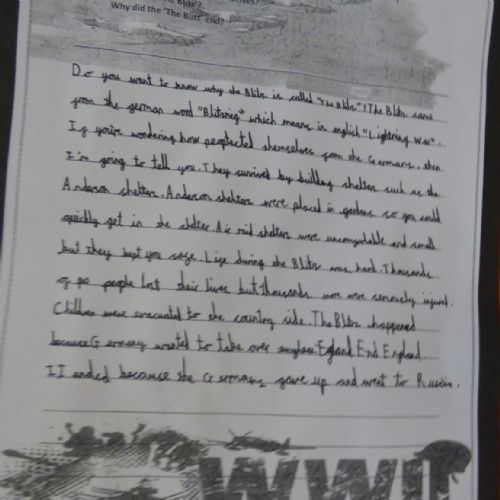 The Blitz'?
Why did the 'The Blitz' end?
Do you want to know why the Blitz is called "The Blitz"? The Blitz came
from the german word "Blitzrieg" which means in english "Lightning War".
If you're wondering how peoplectd themselves from the Germans, then
I'm going to tell you. They survived by building shelters such as the
Anderson shelter. Anderson shelters were placed in gardens so you could
quickly get in the shelter. Air raid shelters were uncomfortable and small
but they kept you safe. Life during the Blitz was hard. Thousands
of people lost their lives but thousands more were seriously injured.
Children were evacuated to the country side. The Blitz happened
because Germany wanted to take over England End England.
It ended because the Germans gave up and went to Russia.
WWII